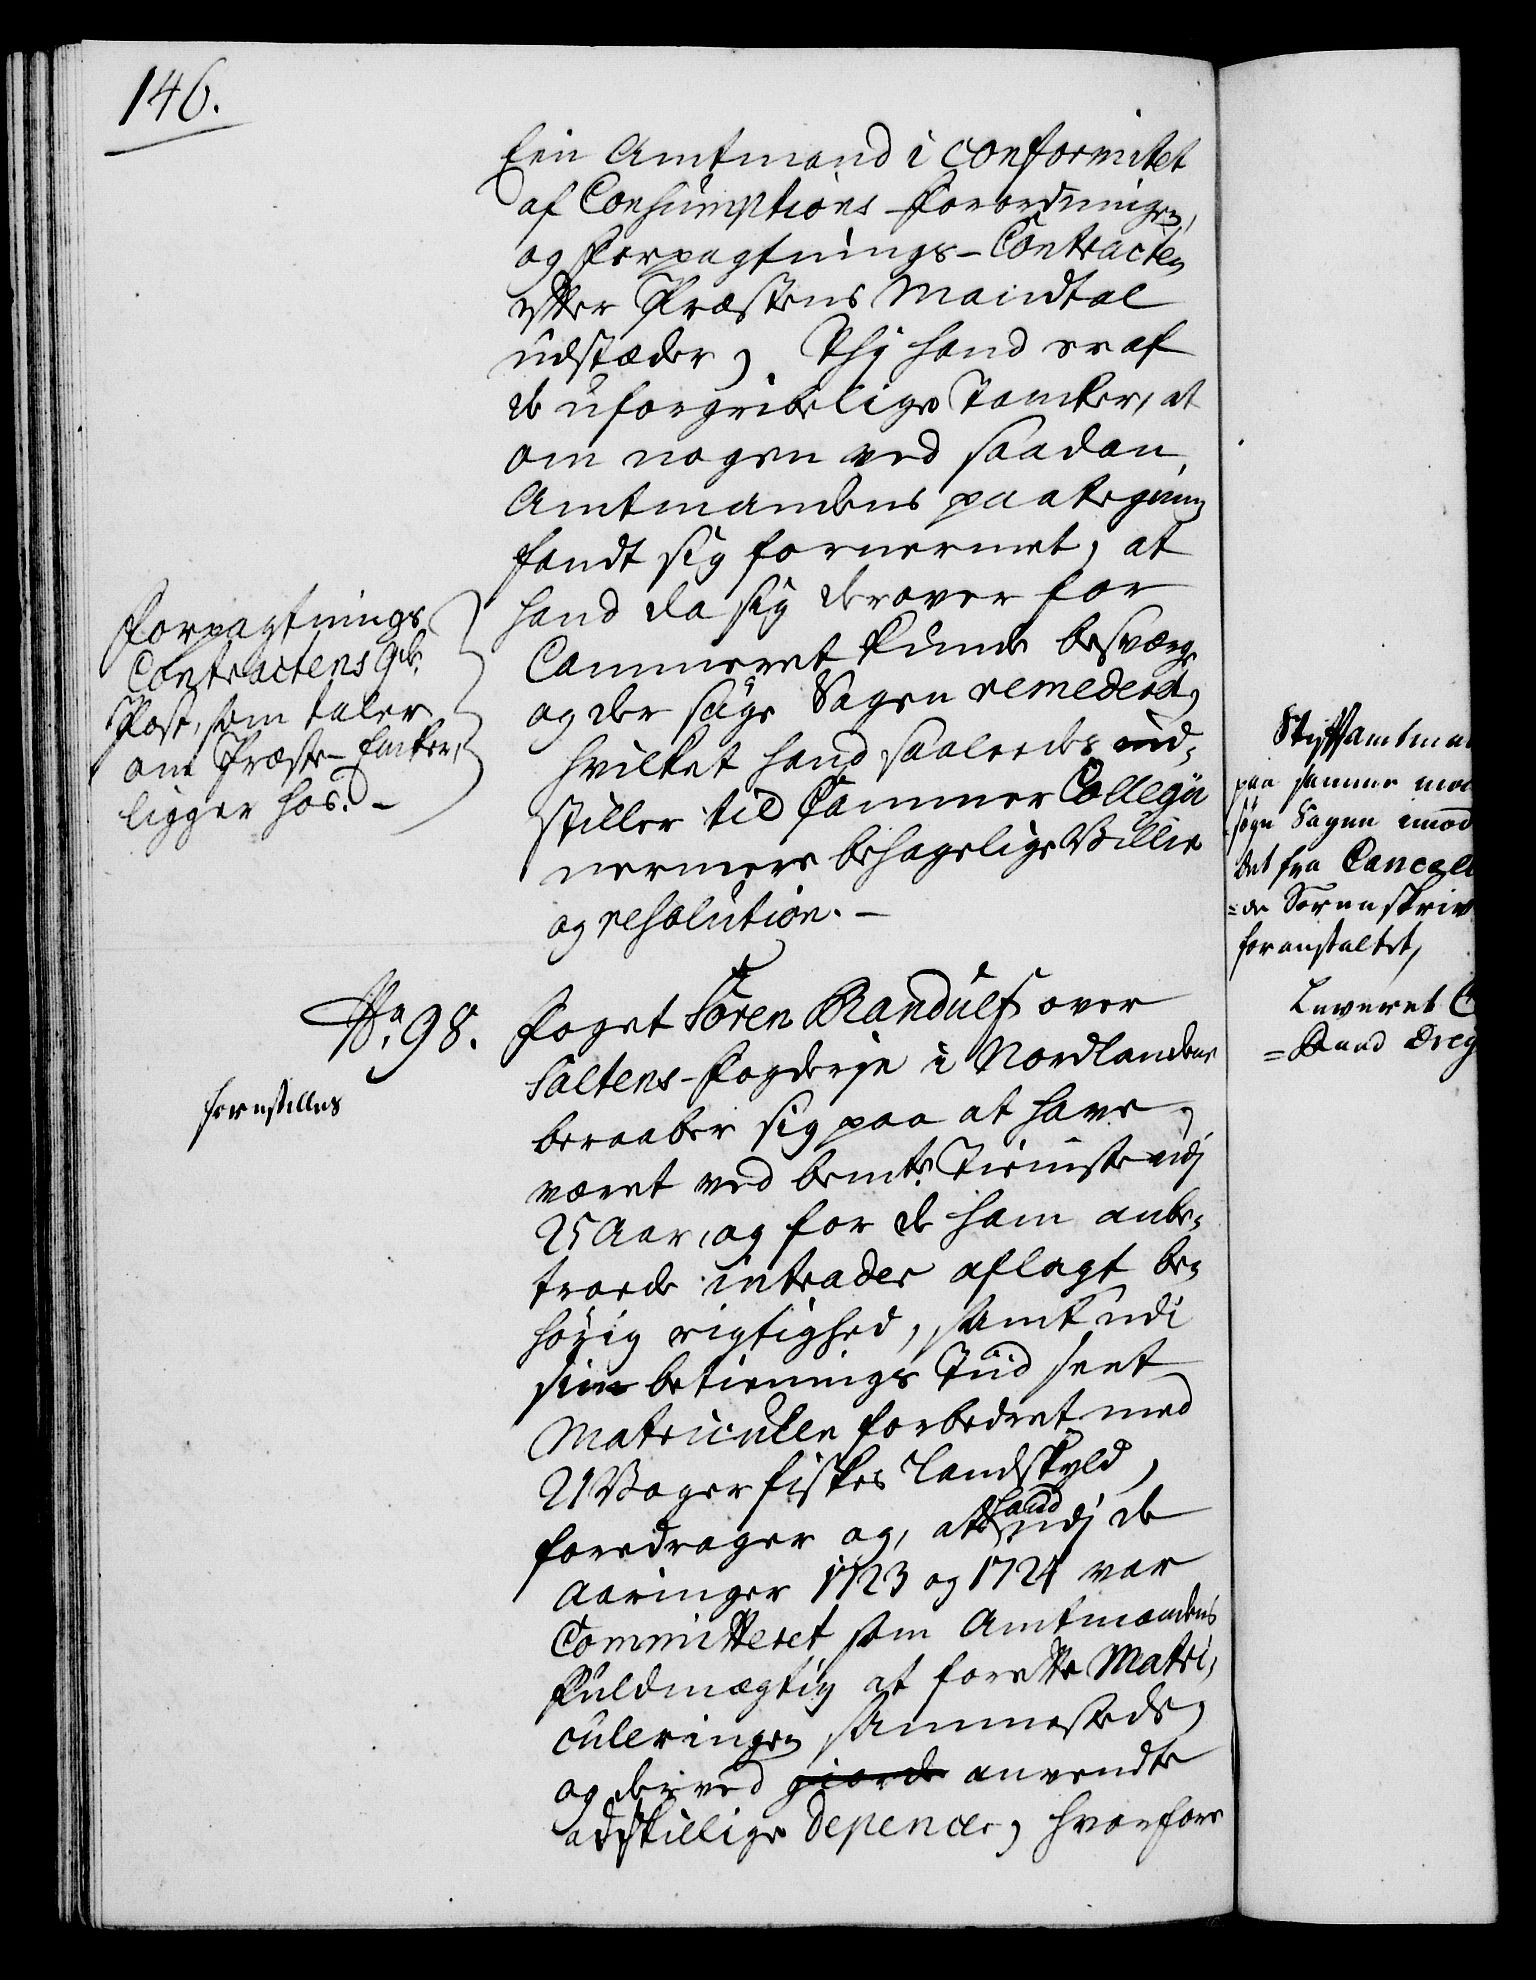 146.
Een Amtmand i conformitet
af Consumptions-Forordningen,
og Forpagtnings-Contracten
efter Præstens Mandtal
udstæder, Thj hand er af
de uforgribelige Tancker, at
om nogen ved saadan
Amtmandens paategning
fandt sig fornermet, at
hand da sig derover for
Cammeret kunde besværge
og der søge Sagen remederet,
hvilket hand saaledes ind-
stiller til Cammer Collegii
nermere behagelige Villie
og resolution. -
Forpagtnings
Contractens 9de
Post, som taler
om Præste-Encker,
ligger hos. -
No. 98.
forestilles
Foget Søren Randulf over
Saltens-Fogderje i Nordlandene
beraaber sig paa at have,
været ved bemte. Tieniste udj
25 Aar, og for de ham anbe-
troede intrader aflagt be-
hørig rigtighed, samt udi
sin betienings Tiid seet
Matriculen forbedret med
21 Voger fiskes Landskyld,
foredrager og, at hand udj de
Aaringer 1723 og 1724 var
Committeret som Amtmandens
Fuldmægtig at forrette Matri-
culeringen sammesteds,
og derved giorde anvendte
adskillige Depencer, hvorfore
Stiftamtma
paa samme
søge Sagen imod
det fra Cancell
=de Sorenskriv
foranstaltet,
Leveret
=Baand